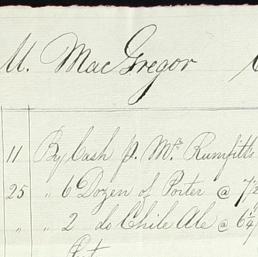 M. MacGregor
11 By Cash p. Mr. Rumfitts
25 " 6 Dozen of Porter @ 7/2
" " 2 do Chile Ale @ 6/4